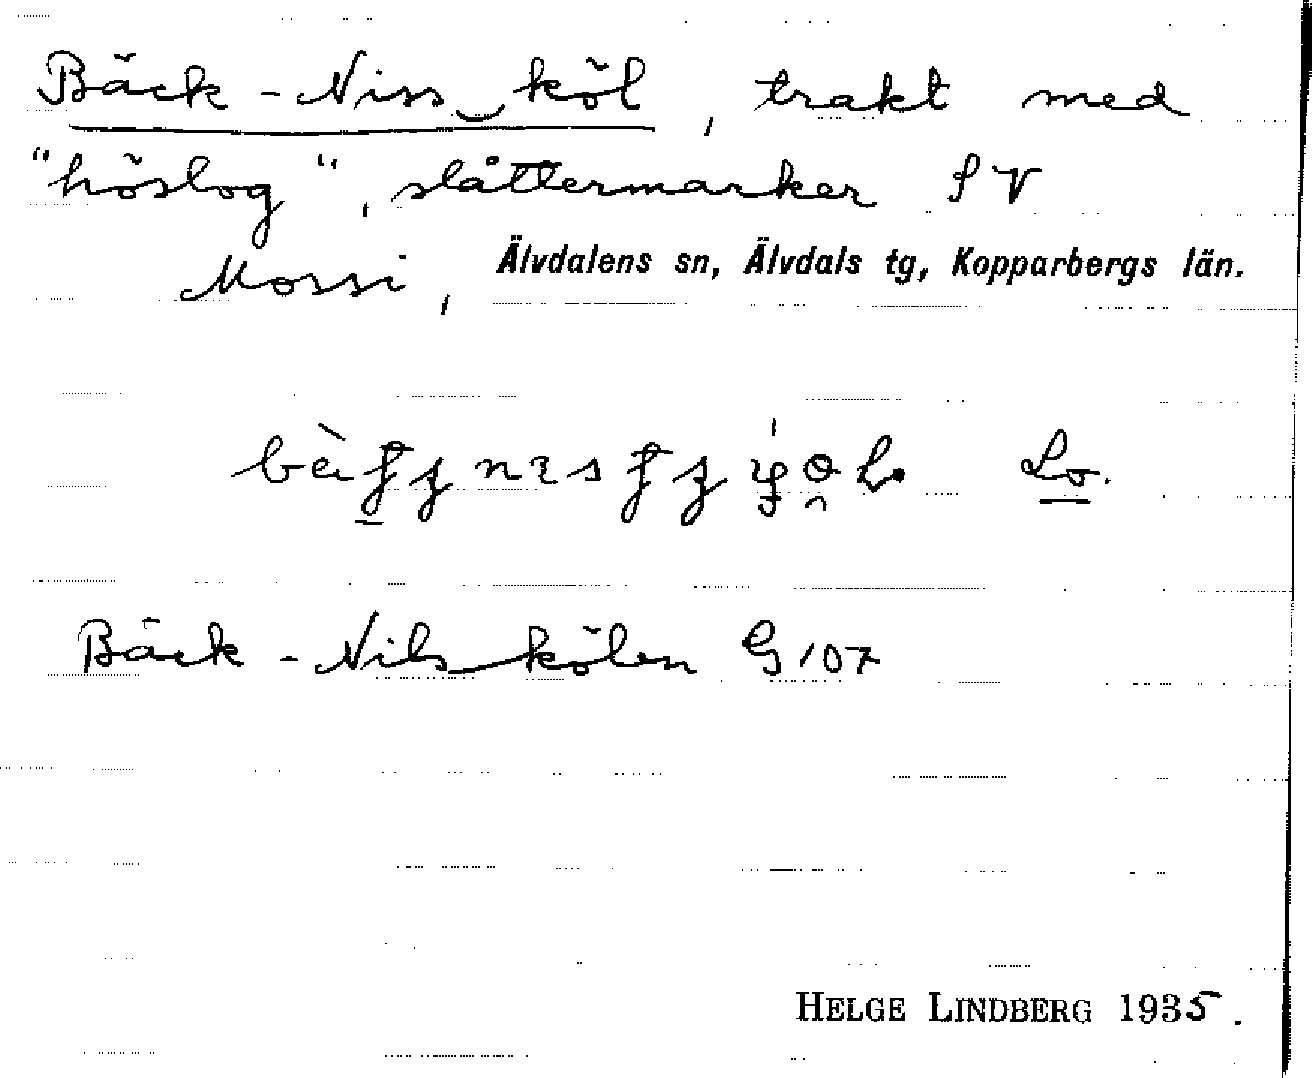 Bäck-Niss‿köl, trakt med
"höslog", slåttermarker SV
Mossi, Älvdalens sn, Älvdals tg, Kopparbergs län.
Lo.
Bäck-Nilskölen G 107
HELGE LINDBERG 1935.